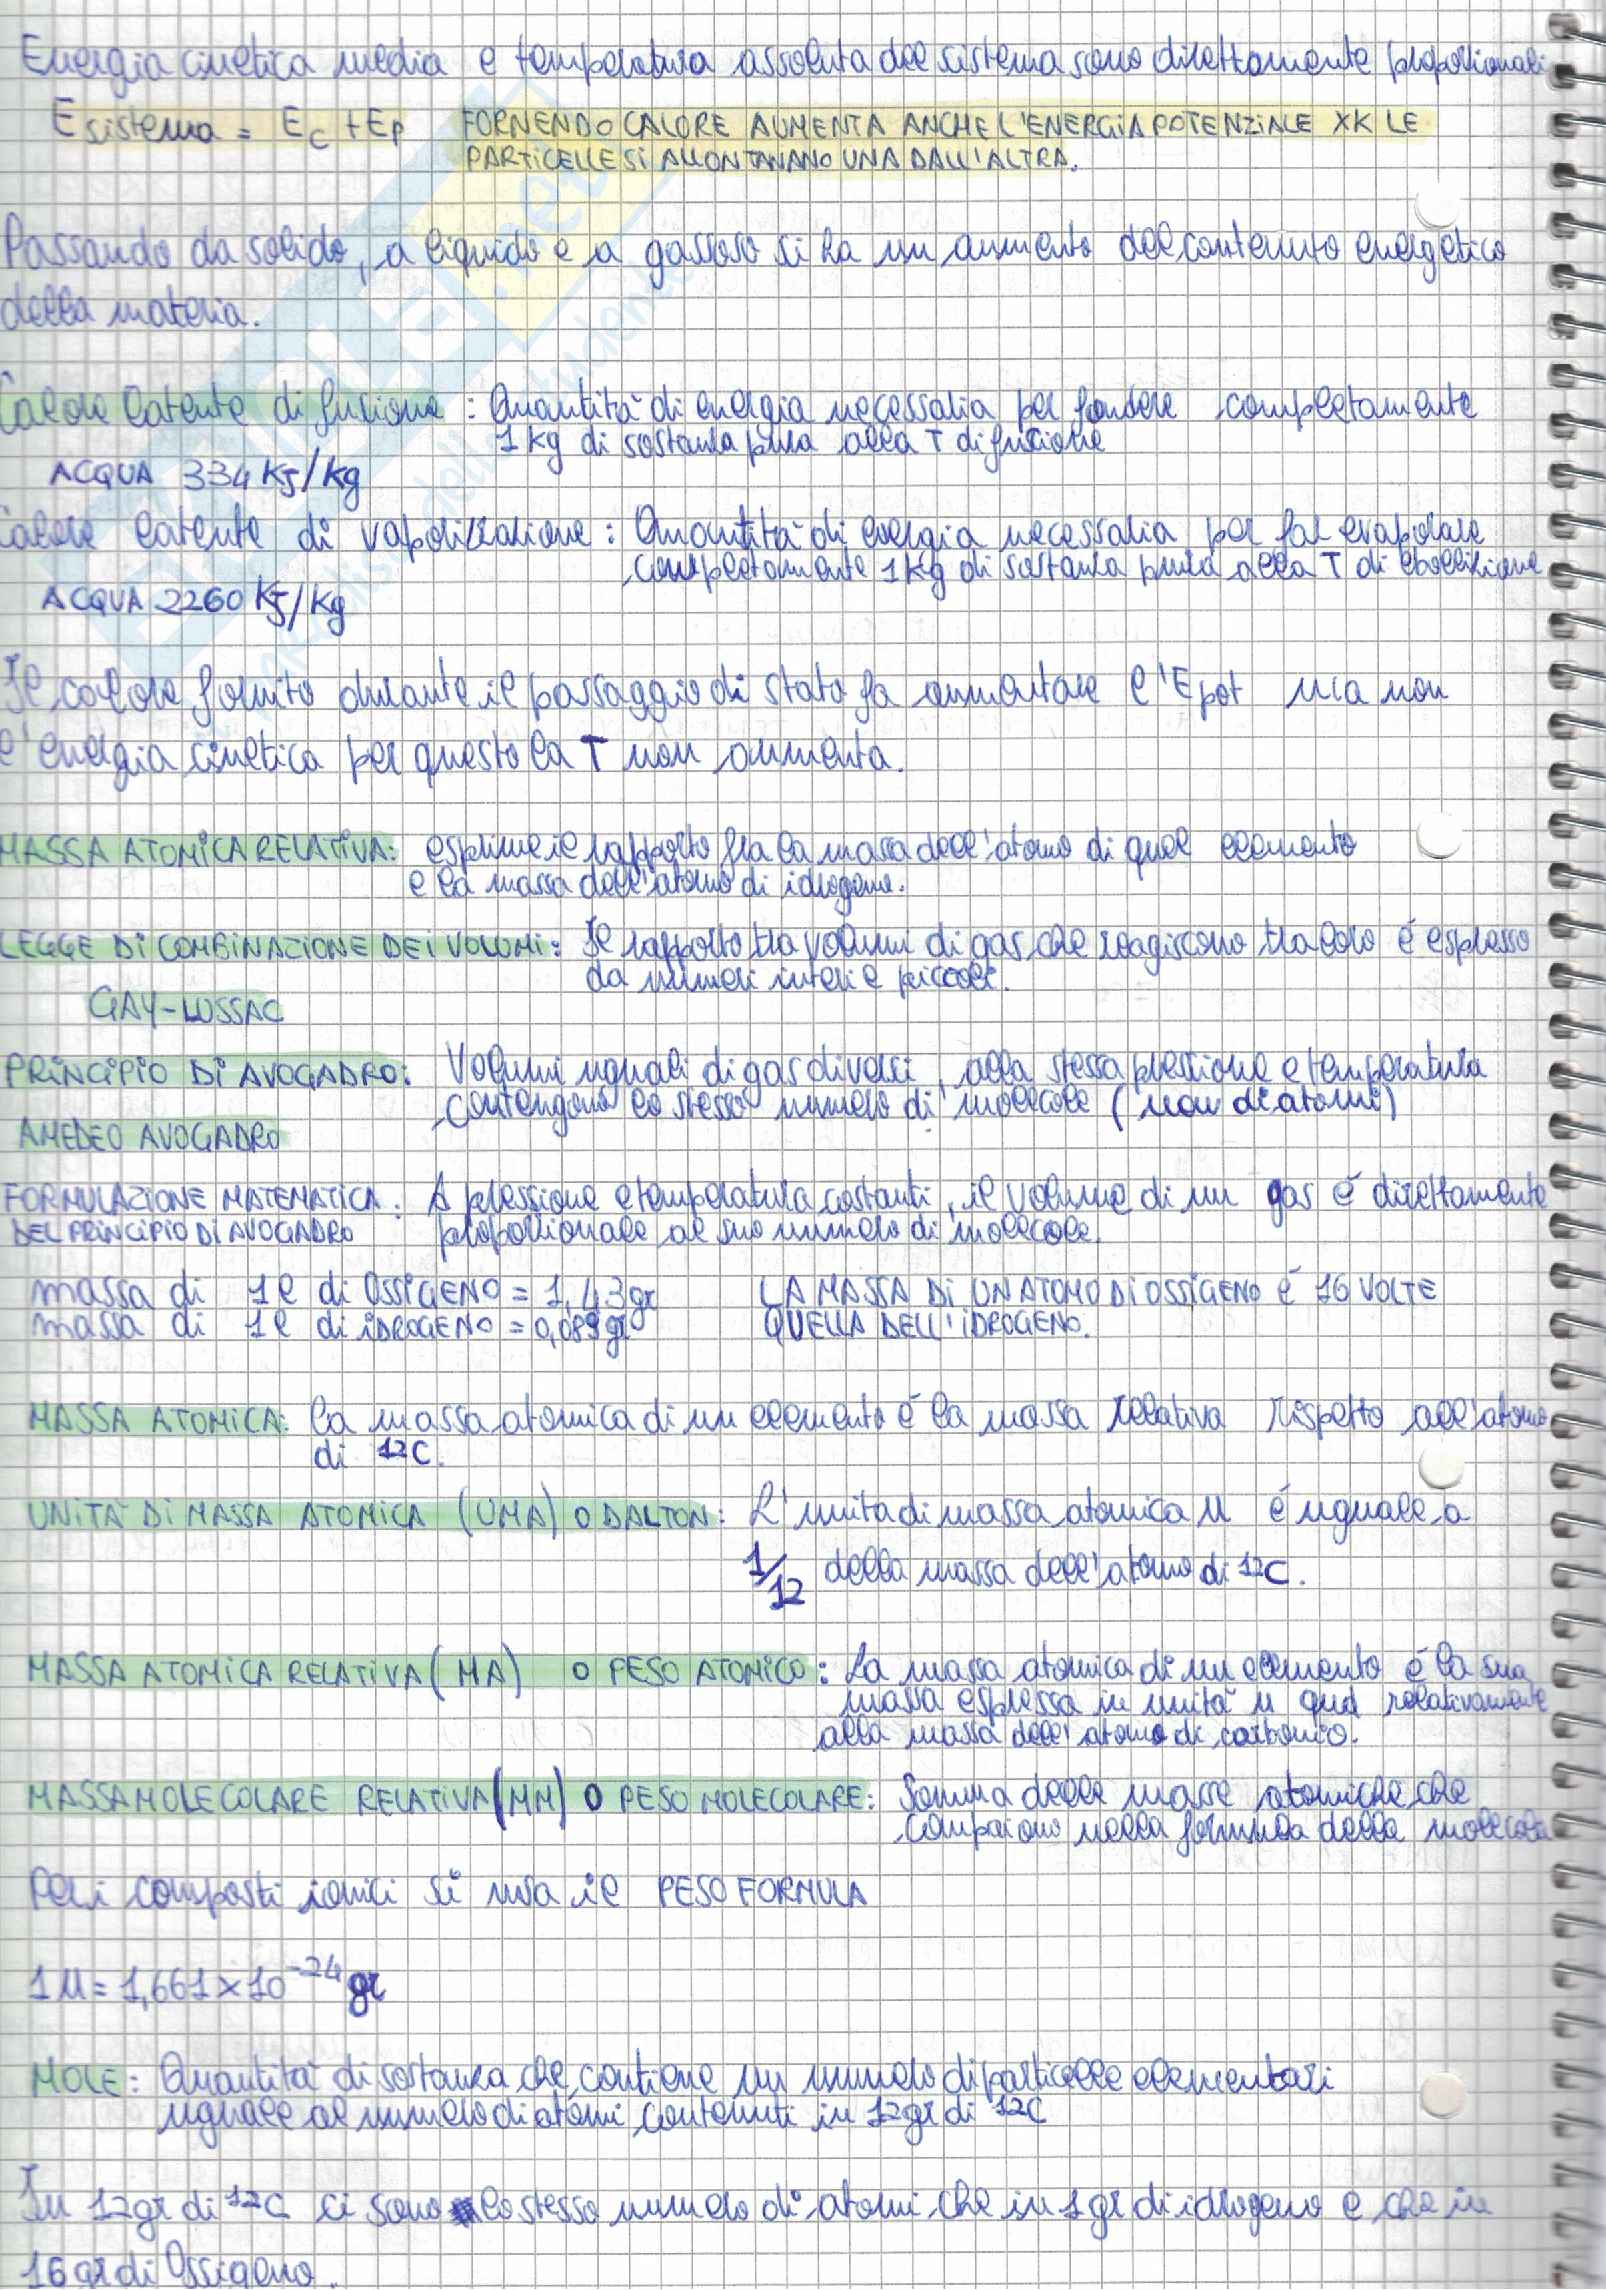 Energia cinetica media e temperatura assoluta del sistema sono direttamente proporzionali
E sistema = Ec + Ep FORNENDO CALORE AUMENTA ANCHE L'ENERGIA POTENZIALE XK LE
PARTICELLE SI ALLONTANANO UNA DALL'ALTRA.
Passando da solido, a liquido e a gassoso si ha un aumento del contenuto energetico
della materia.
Calore latente di fusione : Quantità di energia necessaria per fondere completamente
1 kg di sostanza pura alla T di fusione
ACQUA 334 KJ/kg
Calore latente di vaporizzazione : Quantità di energia necessaria per far evaporare
completamente 1 kg di sostanza pura alla T di ebollizione
ACQUA 2260 KJ/kg
Il calore fornito durante il passaggio di stato fa aumentare l'Epot ma non
l'energia cinetica per questo la T non aumenta.
MASSA ATOMICA RELATIVA: esprime il rapporto fra la massa dell'atomo di quel elemento
e la massa dell'atomo di idrogeno.
LEGGE DI COMBINAZIONE DEI VOLUMI: Il rapporto tra volumi di gas che reagiscono tra loro è espresso
da numeri interi e piccoli.
GAY-LUSSAC
PRINCIPIO DI AVOGADRO: Volumi uguali di gas diversi, alla stessa pressione e temperatura
contengono lo stesso numero di molecole (non di atomi)
AMEDEO AVOGADRO
FORMULAZIONE MATEMATICA : A pressione e temperatura costanti, il volume di un gas è direttamente
DEL PRINCIPIO DI AVOGADRO proporzionale al suo numero di molecole.
massa di 1l di OSSIGENO = 1,43gr LA MASSA DI UN ATOMO DI OSSIGENO È 16 VOLTE
massa di 1l di IDROGENO = 0,089gr QUELLA DELL'IDROGENO.
MASSA ATOMICA: la massa atomica di un elemento è la massa relativa rispetto all'atomo
di 12C.
UNITÀ DI MASSA ATOMICA (UMA) O DALTON: L'unità di massa atomica u è uguale a
1/12 della massa dell'atomo di 12C.
MASSA ATOMICA RELATIVA (MA) O PESO ATOMICO: La massa atomica di un elemento è la sua
massa espressa in unità u relativamente
alla massa dell'atomo di carbonio.
MASSA MOLECOLARE RELATIVA (MM) O PESO MOLECOLARE: Somma delle masse atomiche che
compaiono nella formula della molecola
Per i composti ionici si usa il PESO FORMULA
1u = 1,661 × 10⁻²⁴ gr
MOLE: Quantità di sostanza che contiene un numero di particelle elementari
uguale al numero di atomi contenuti in 12gr di 12C
In 12gr di 12C ci sono lo stesso numero di atomi che in 1gr di idrogeno e che in
16gr di Ossigeno.